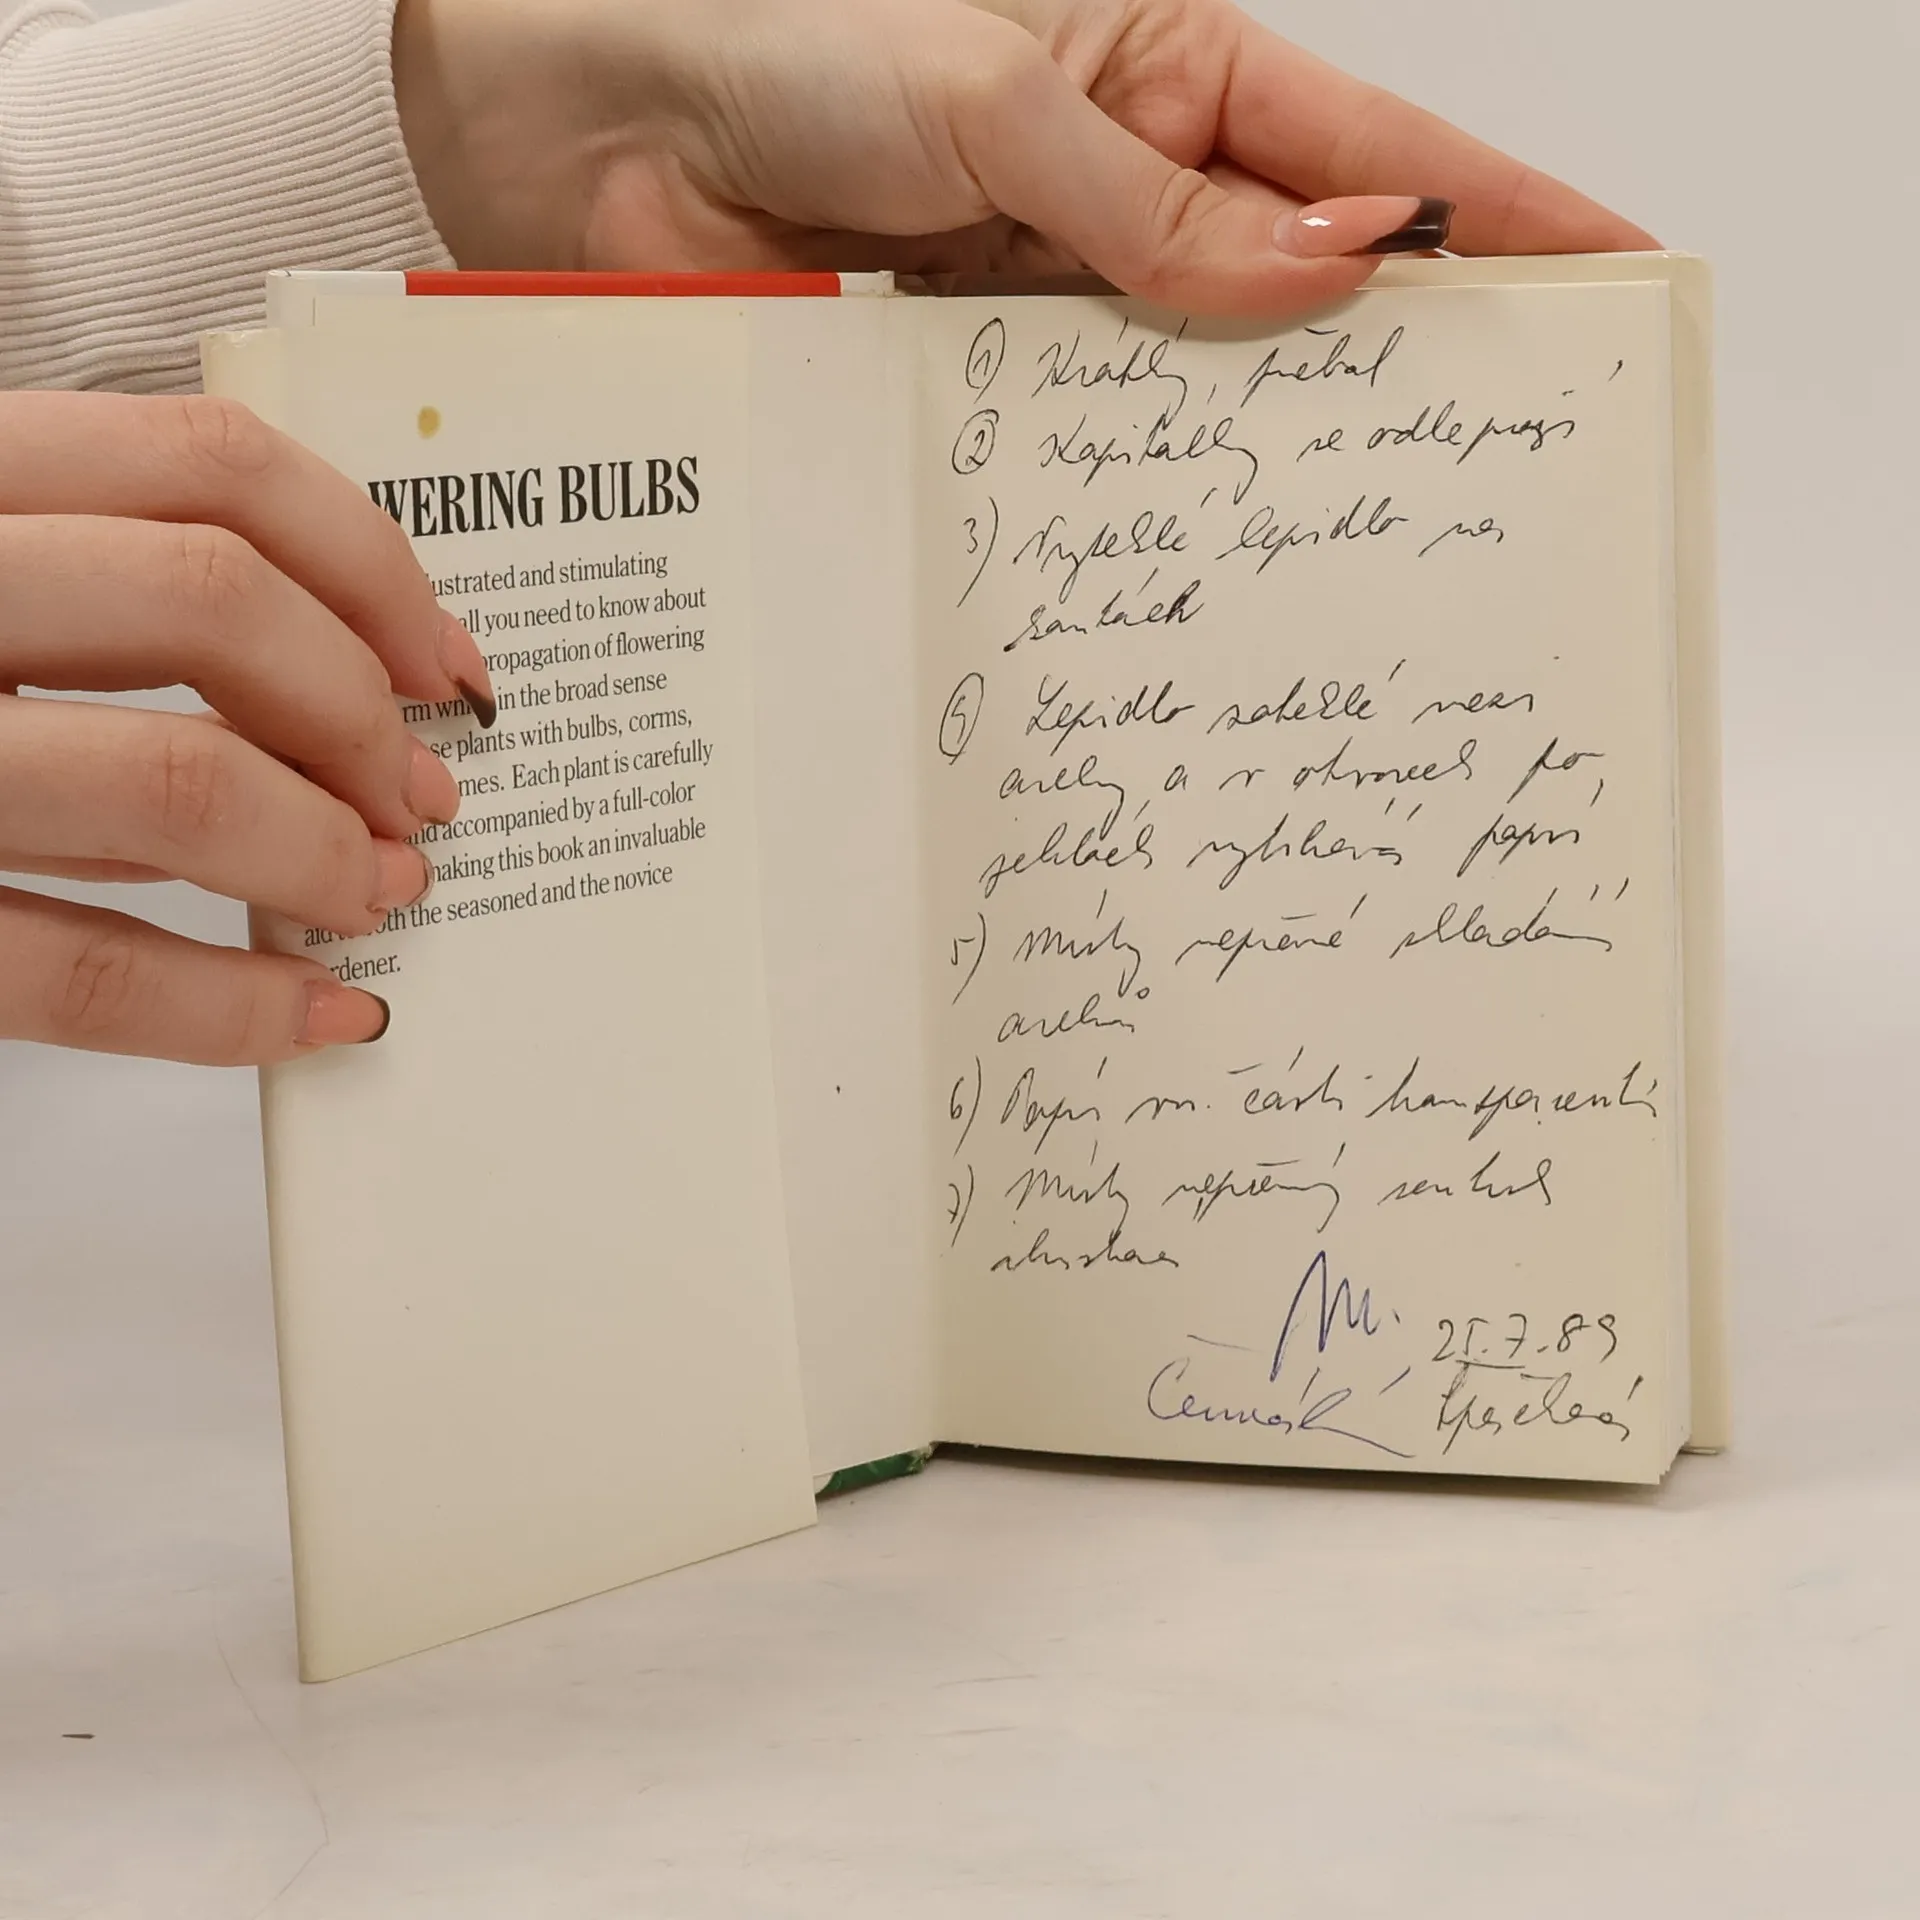 WERING BULBS
lustrated and stimulating
all you need to know about
propagation of flowering
rm whi in the broad sense
se plants with bulbs, corms,
mes. Each plant is carefully
and accompanied by a full-color
making this book an invaluable
aid to both the seasoned and the novice
rdener.
① Krátký přebal
② Kapitálky se odlepují
3) Vyteklé lepidlo na
④ Lepidlo zateklé mezi
archy a v otvorech po
jehlách vytrhává papír
5) Místy nepřesné skládání
archů
6) Papír má části transparentní
7) Místy nepřesný soutisk
ilustrací
25.7.89